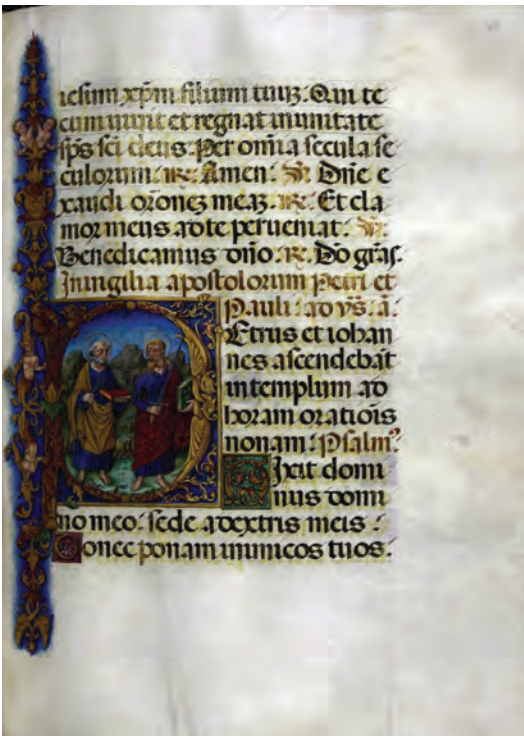 iesum xp̄m filium tuuꝫ. Qui te
cum uiuit et regnat in unitate
sp̄s sc̄i deus. Per om̄ia secula se
culorum. ℟. Amen. ℣. Dn̄e e
xaudi or̄onez meaꝫ. ℟. Et cla
mor meus ad te perueniat. ℣.
Benedicamus dn̄o. ℟. Do gr̄as.
In uigilia apostolorum Petri et
Pauli. ad vs̄. ā.
Etrus et iohan
nes ascendebāt
in templum ad
horam oratiōis
nonam. Psalm⁹.
Dixit domi
nus domi
no meo. sede a dextris meis.
Donec ponam inimicos tuos.